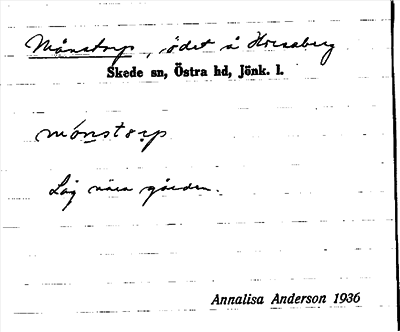 Månstorp, ödet å Horsaberg
Skede sn, Östra hd, Jönk. l.
mónstorp
Låg nära gården.
Annalisa Anderson 1936